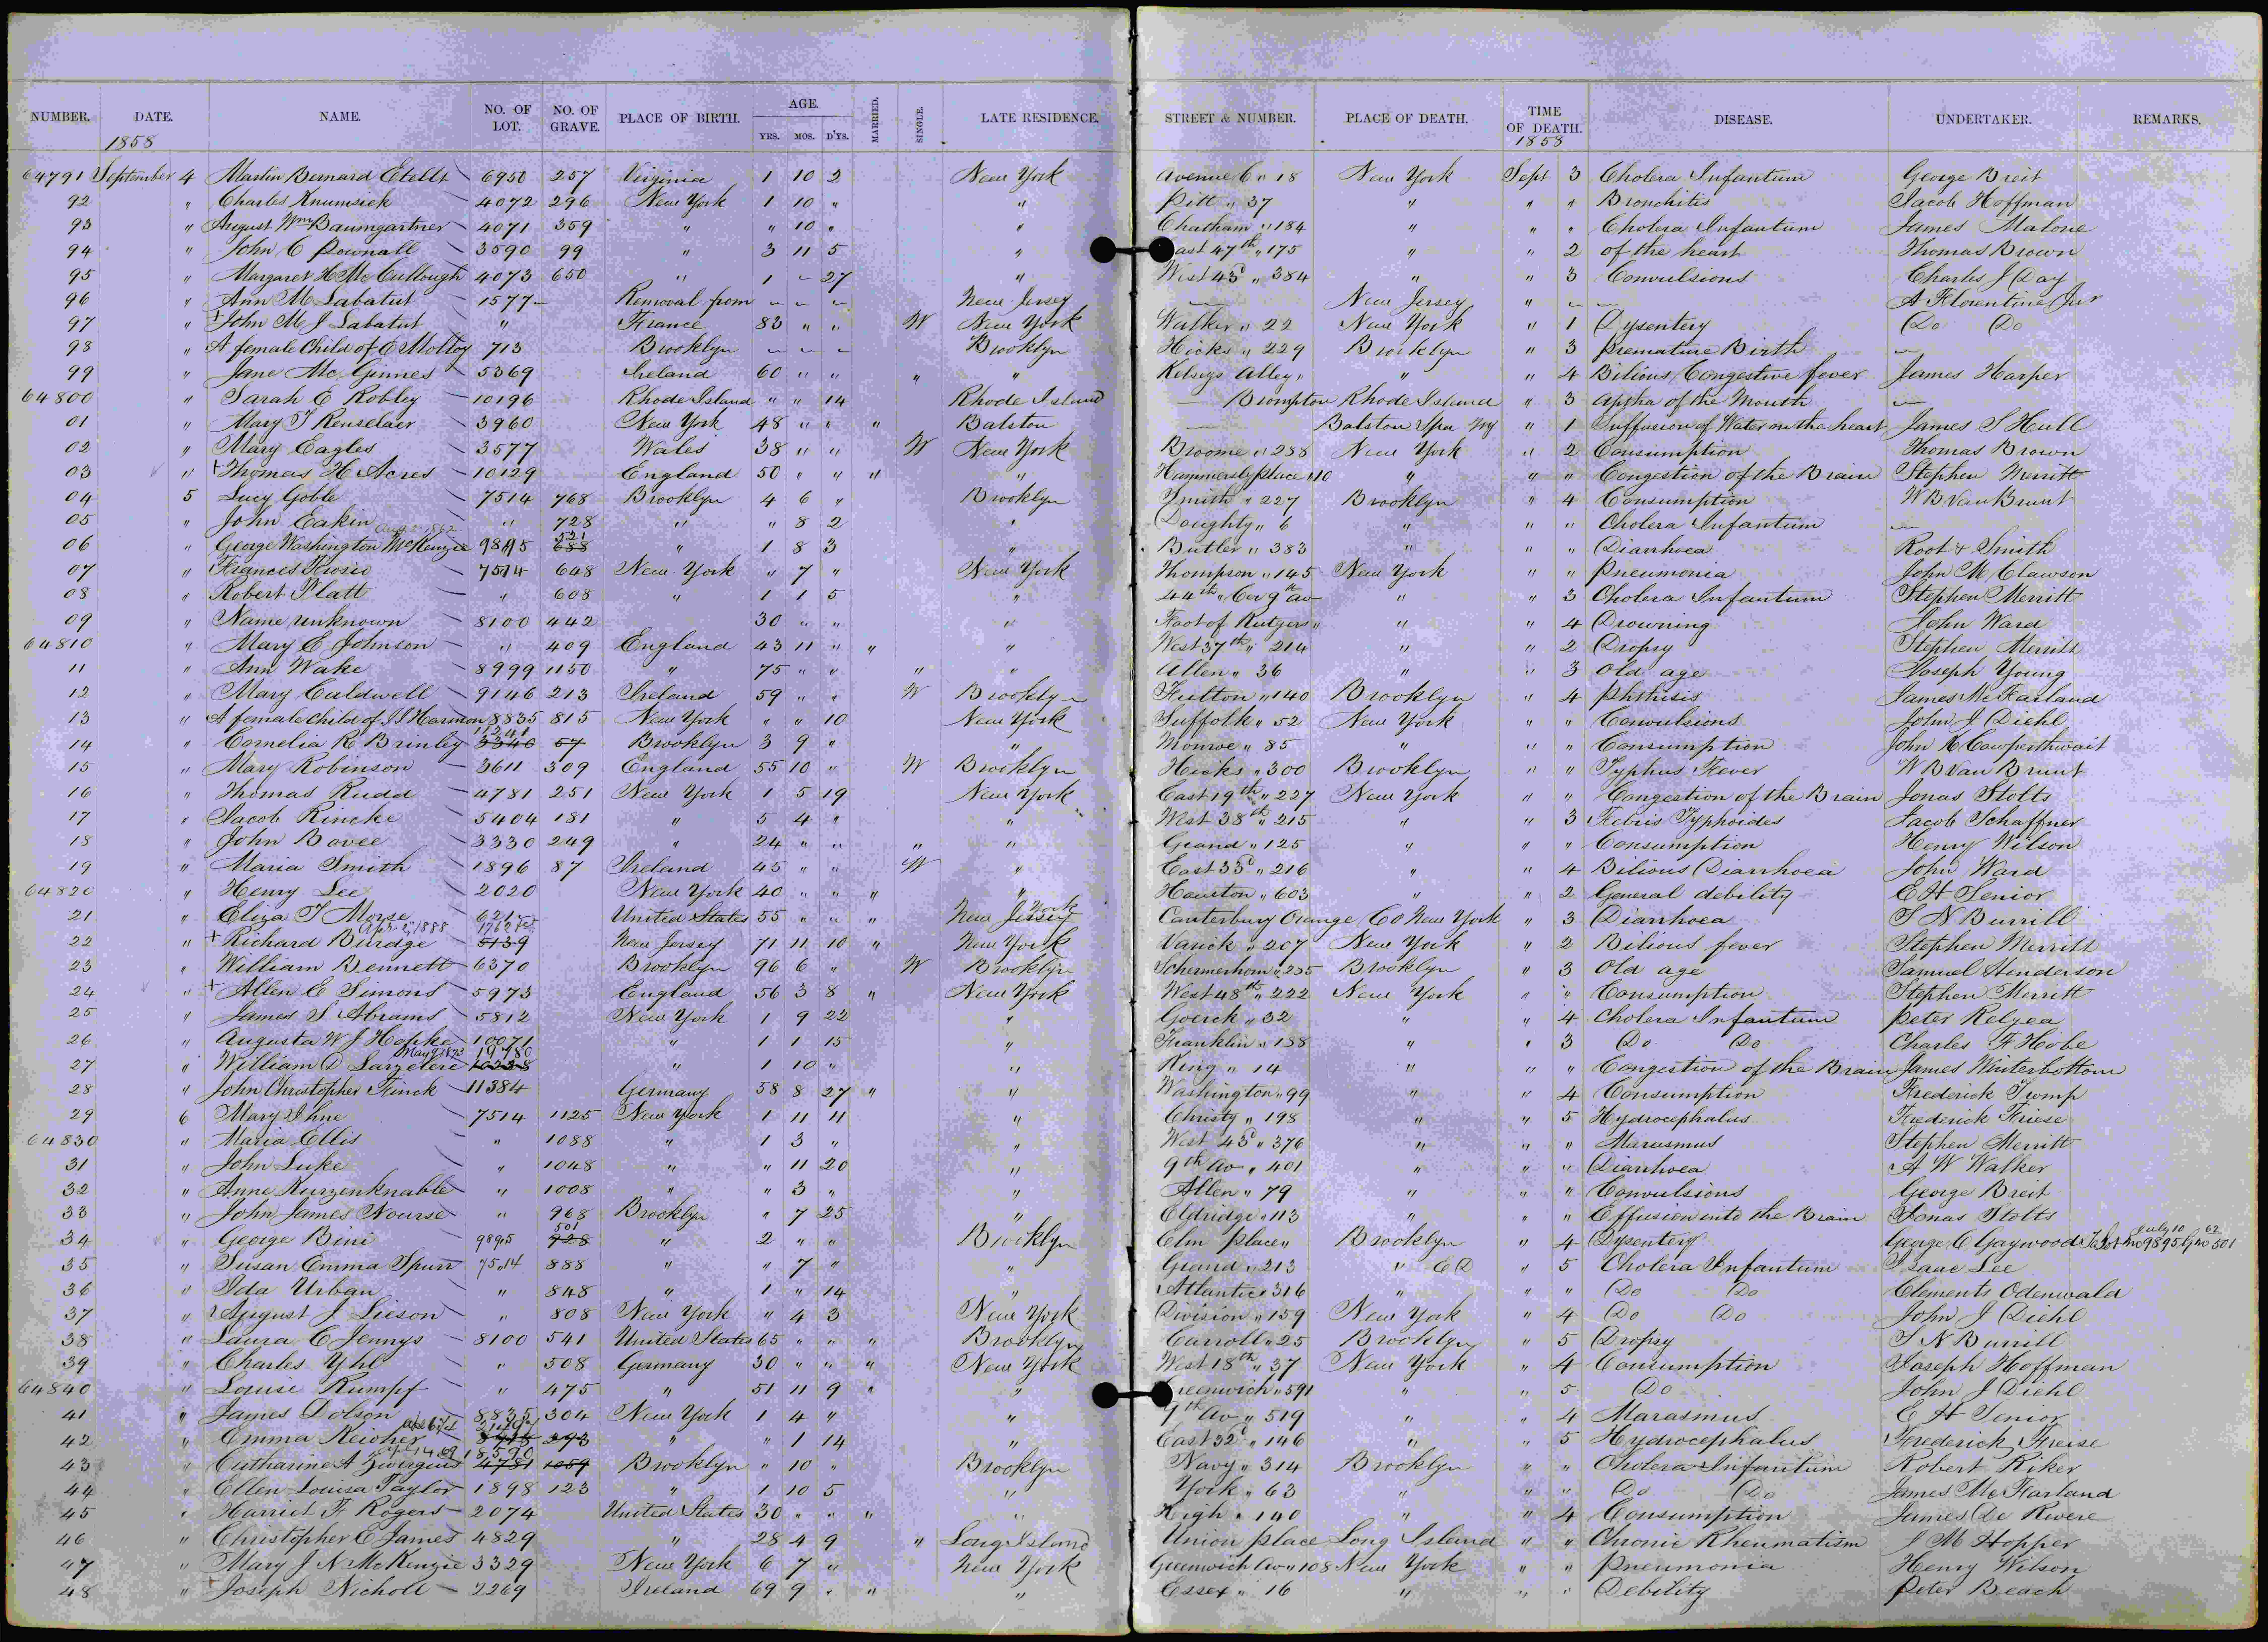 NUMBER. DATE. NAME. NO. OF LOT. NO. OF GRAVE. PLACE OF BIRTH. AGE. YRS. MOS. D'YS. MARRIED. SINGLE. LATE RESIDENCE. STREET & NUMBER. PLACE OF DEATH. TIME OF DEATH. DISEASE. UNDERTAKER. REMARKS.
1858 1858
64791 September 4 Martin Bernard 6950 257 Virginia 1 10 2 New York Avenue C " 18 New York Sept 3 Cholera Infantum George Breit
92 " Charles Knumsick 4072 296 New York 1 10 " " Pitt " 37 " " " Bronchitis Jacob Hoffman
93 " August Wm Baumgartner 4071 359 " " 10 " " Chatham " 184 " " " Cholera Infantum James Malone
94 " John C Pownall 3590 99 " 3 11 5 " East 47th " 175 " " 2 of the heart Thomas Brown
95 " Margaret H McCullough 4073 650 " 1 - 27 " West 43d " 384 " " 3 Convulsions Charles J Day
96 " Ann M Labatut 1577 - Removal from - - - New Jersey - New Jersey " - - A Florentine Jur
97 " + John M J Labatut " France 83 " " W New York Walker " 22 New York " 1 Dysentery Do Do
98 " A female Child of E Molloy 713 Brooklyn - - - Brooklyn Hicks " 229 Brooklyn " 3 Premature Birth -
99 " Jane McGinnes 5369 Ireland 60 " " " " Kelseys Alley " " " 4 Bilious Congestive fever James Harper
64800 " Sarah E Robley 10196 Rhode Island " " 14 Rhode Island - Brompton Rhode Island " 3 Aptha of the Mouth -
01 " Mary T Renselaer 3960 New York 48 " " " Balston - Balston Spa NY " 1 Suffusion of Water on the heart James S Hull
02 " Mary Eagles 3577 Wales 38 " " W New York Broome " 288 New York " 2 Consumption Thomas Brown
03 " + Thomas H Acres 10129 England 50 " " " " Hammersly place 110 " " " Congestion of the Brain Stephen Merritt
04 5 Lucy Goble 7514 768 Brooklyn 4 6 " Brooklyn Smith " 227 Brooklyn " 4 Consumption W B Van Brunt
05 " John Eakin " 728 " " 8 2 " Doughty " 6 " " " Cholera Infantum -
Aug 2 1862 521
06 " George Washington McKenzie 9895 688 " 1 8 3 " Butler " 383 " " " Diarrhoea Root & Smith
07 " Frances 7514 648 New York " 7 " New York Thompson " 145 New York " " Pneumonia John M Clawson
08 " Robert Platt " 608 " 1 1 5 " 44th " Cor 9th Av " " 3 Cholera Infantum Stephen Merritt
09 " Name unknown 8100 442 30 " " " Foot of Rutgers " " " 4 Drowning John Ward
64810 " Mary E Johnson " 409 England 43 11 " " " West 37th " 214 " " 2 Dropsy Stephen Merritt
11 " Ann Wake 8999 1150 " 75 " " " " Allen " 36 " " 3 Old age Joseph Young
12 " Mary Caldwell 9146 213 Ireland 59 " " W Brooklyn Fulton " 140 Brooklyn " 4 Phthisis James McFarland
13 " A female child of J J Harmon 8835 815 New York " " 10 New York Suffolk " 52 New York " " Convulsions John J Diehl
14 " Cornelia R Brinley 3340 57 Brooklyn 3 9 " " Monroe " 85 " " " Consumption John K Cowperthwait
15 " Mary Robinson 3611 309 England 55 10 " W Brooklyn Hicks " 300 Brooklyn " " Typhus Fever W B Van Brunt
16 " Thomas Rudd 4781 251 New York 1 5 19 New York East 19th " 227 New York " " Congestion of the Brain Jonas Stolts
17 " Jacob Rincke 5404 181 " 5 4 " " West 38th " 215 " " 3 Febris Typhoides Jacob Schaffner
18 " John Bovee 3330 249 " 24 " " " " Grand " 125 " " " Consumption Henry Wilson
19 " Maria Smith 1896 87 Ireland 45 " " W " East 33d " 216 " " 4 Bilious Diarrhoea John Ward
64820 " Henry Lee 2020 New York 40 " " " " Houston " 603 " " 2 General debility E H Senior
21 " Eliza T Morse 621 United States 55 " " " New Jersey York Canterbury Orange Co New York " 3 Diarrhoea S N Burrill
Apr 2, 1888
22 " + Richard Burdge 5139 New Jersey 71 11 10 " New York Varick " 207 New York " 2 Bilious fever Stephen Merritt
23 " William Bennett 6370 Brooklyn 96 6 " W Brooklyn Schermerhorn " 235 Brooklyn " 3 Old age Samuel Henderson
24 " + Allen C Simons 5973 England 56 3 8 " New York West 48th " 222 New York " " Consumption Stephen Merritt
25 " James S Abrams 5812 New York 1 9 22 " Goerck " 32 " " 4 Cholera Infantum Peter Relyea
26 " Augusta W J Hopke 10071 " 1 1 15 " Franklin " 138 " " 3 Do Do Charles F Hobe
May 9 1873 19780
27 " William D Larzelere 10228 " 1 10 " " King " 14 " " " Congestion of the Brain James Winterbottom
28 " John Christopher Finck 11384 Germany 58 8 27 " " Washington " 99 " " 4 Consumption Frederick Tromp
29 6 Mary Ihne 7514 1125 New York 1 11 11 " Christy " 198 " " 5 Hydrocephalus Frederick Friese
64830 " Maria Ellis " 1088 " 1 3 " " West 43d " 376 " " " Marasmus Stephen Merritt
31 " John Luke " 1048 " " 11 20 " 9th Av " 401 " " " Diarrhoea A W Walker
32 " Anne Kurzenknable " 1008 " " 3 " " Allen " 79 " " " Convulsions George Breit
33 " John James Nourse " 968 Brooklyn " 7 25 " Eldridge " 113 " " " Effusion into the Brain Jonas Stolts
501 July 10 62
34 " George Bini 9895 928 " 2 " " Brooklyn Elm place " Brooklyn " 4 Dysentery George C Gaywood To Lot No 9895 G no 501
35 " Susan Emma Spurr 7514 888 " " 7 " " Grand " 213 " E D " 5 Cholera Infantum Isaac Lee
36 " Ida Urban " 848 " 1 " 14 " Atlantic " 316 " " " Do Do Clements Odenwald
37 " August J Sieson " 808 New York " 4 3 New York Division " 159 New York " 4 Do Do John J Diehl
38 " Laura C Jennys 8100 541 United States 65 " " " Brooklyn Carroll " 25 Brooklyn " 5 Dropsy S N Burrill
39 " Charles Yhl " 508 Germany 30 " " " New York West 18th " 37 New York " 4 Consumption Joseph Hoffman
64840 " Louise Rumpf " 475 " 51 11 9 " " Greenwich " 591 " " 5 Do John J Diehl
41 " James Dolson 8835 304 New York 1 4 " " 9th Av " 519 " " 4 Marasmus E H Senior
42 " Emma Reicher 293 " " 1 14 " East 32d " 146 " " 5 Hydrocephalus Frederick Freise
18590
43 " Catharine A 4781 1059 Brooklyn " 10 " Brooklyn Navy " 314 Brooklyn " " Cholera Infantum Robert Riker
44 " Ellen Louisa Taylor 1898 123 " 1 10 5 " York " 63 " " " Do Do James McFarland
45 " Harriet F Rogers 2074 United States 30 " " " " High " 140 " " 4 Consumption James De Revere
46 " Christopher E James 4829 " 28 4 9 " Long Island Union place Long Island " " Chronic Rheumatism J M Hopper
47 " Mary J N McKenzie 3329 New York 6 7 " New York Greenwich Av " 108 New York " " Pneumonia Henry Wilson
48 " + Joseph Nicholl 2269 Ireland 69 9 " " " Essex " 16 " " " Debility Peter Beach